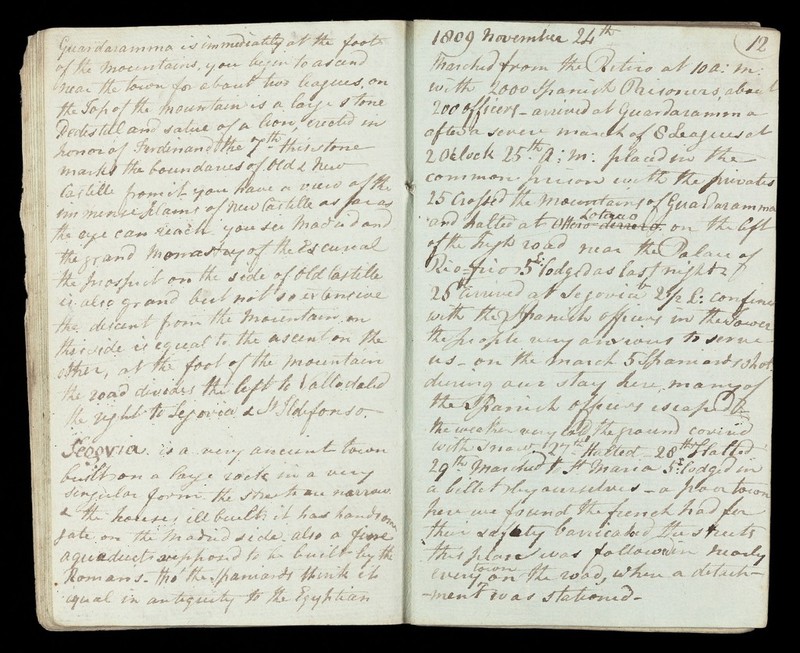 Guardaramma is immediately at the foot
of the mountains, you begin to ascend
near the town for about two leagues, on
the Top of the mountain is a large stone
Pedestill and statue of a Lion, erected in
honor of Ferdinand the 7th - this stone
marks the boundaries of Old & New
Castille from it you have a view of the
immense Plains of New Castille as far as
the eye can reach you see Madrid and
the grand Monastry of the Escurial
the prospect on the side of Old Castille
is also grand but not so extensive
the descent from the Mountain on
this side is equal to the ascent on the
other, at the foot of the mountain
the road divides the left to Valladalid
the right to Segovia & St Ildifonso. -
Segovia is a very ancient town
built on a large rock in a very
singular form the streets are narrow
& the houses ill built: it has handsom
gate on the Madrid side also a fine
aqueduct supposed to be built by the
Romans - tho' the Spaniards think it
equal in antiquity to the Egyptian
12
1809 November 24th
Marched from the Retiro at 10 a: m:
with 2000 Spanish Prisoners, about
200 officers - arrived at Guardaramma
after a severe march of 8 leagues at
2 Oclock 25th A: m: placed in the
common prison with the privates
25 Crossed the mountains of Guardaramma
and halted at on the left
of the high road near the Palace of
Rio-frio 5 L: lodged as last night
25th arrived at Segovia 2 1/2 L: confined
with the Spanish officers in the Tower
the people very anxious to serve
us - on the march 5 Spaniards shot
during our stay here many of
the Spanish officers escaped
the weather very cold the ground coverd
with snow 27th Halted - 28th Halted
29th Marched to St Maria 5 L lodged in
a billet by ourselves - a poor town
here we found the french had for
their safety barricaded the streets
this place was followd in nearly
every town on the road, where a detach-
-ment was stationed -